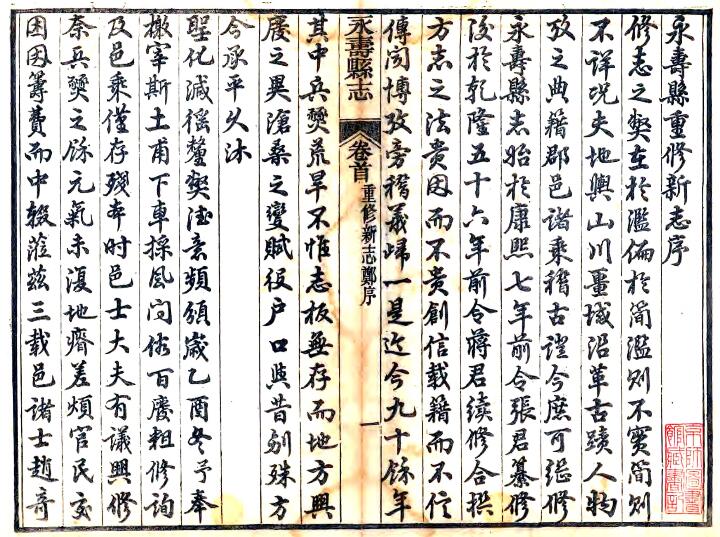 永壽縣重修新志序
修志之獘在於濫偏於簡濫則不實簡則
不詳况夫地輿山川畺域沿革古蹟人物
攷之典籍郡邑諸乘稽古證今庶可繼修
永壽縣志始於康熙七年前令張君纂修
後於乾隆五十六年前令蔣君續修合撰
方志之法貴因而不貴創信載籍而不信
傳聞博攷旁稽義歸一是迄今九十餘年
永壽縣志 卷首 重修新志鄭序 一
其中兵燹荒旱不惟志板無存而地方興
廢之異滄桑之變賦役戶口與昔劃殊方
今承平久沐
聖化減徭釐獘德意頻頒歲乙酉冬予奉
檄宰斯土甫下車採風問俗百廢粗修詢
及邑乘僅存殘本時邑士大夫有議興修
奈兵燹之餘元氣未復地瘠差煩官民交
困因籌費而中輟蒞茲三載邑諸士趙奇